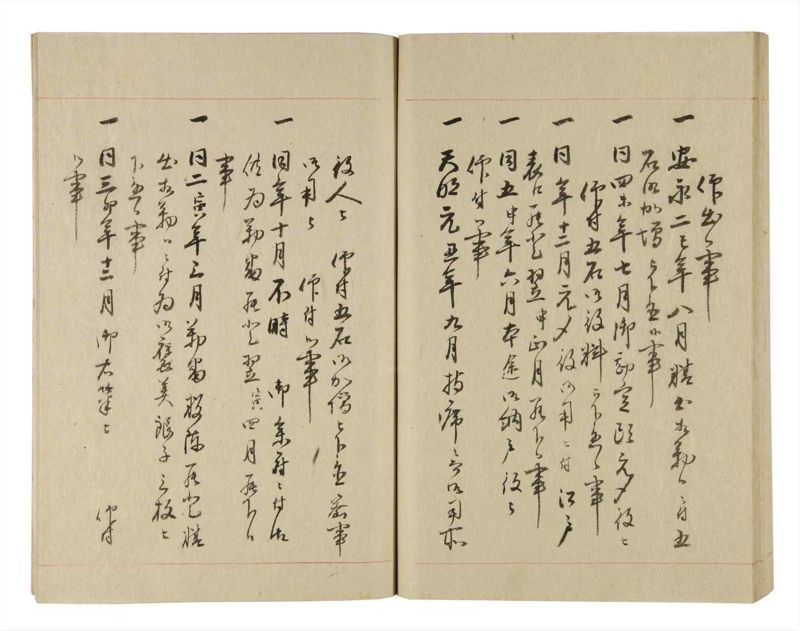 仰出候事
一 安永二巳年八月精出相勤候ニ付五
石御加増被下置候事
一 同四未年七月御勘定頭元〆役ニ
仰付五石御役料被下置候事
一 同年十二月元〆役御用ニ付江戸
表江罷登翌申正月罷下候事
一 同五申年六月本途御納戸役ニ
仰付候事
一 天明元丑年九月指席ニ御用所
役人ニ 仰付五石御加増被下置
御用ニ 仰付候事
一 同年十月不時 御参府ニ付御
供為勤番罷登翌寅四月罷下候
事
一 同二寅年三月勤番 罷登精
出相勤候ニ付為御褒美銀子三枚
下置候事
一 同三卯年十二月御右筆ニ 仰付
候事